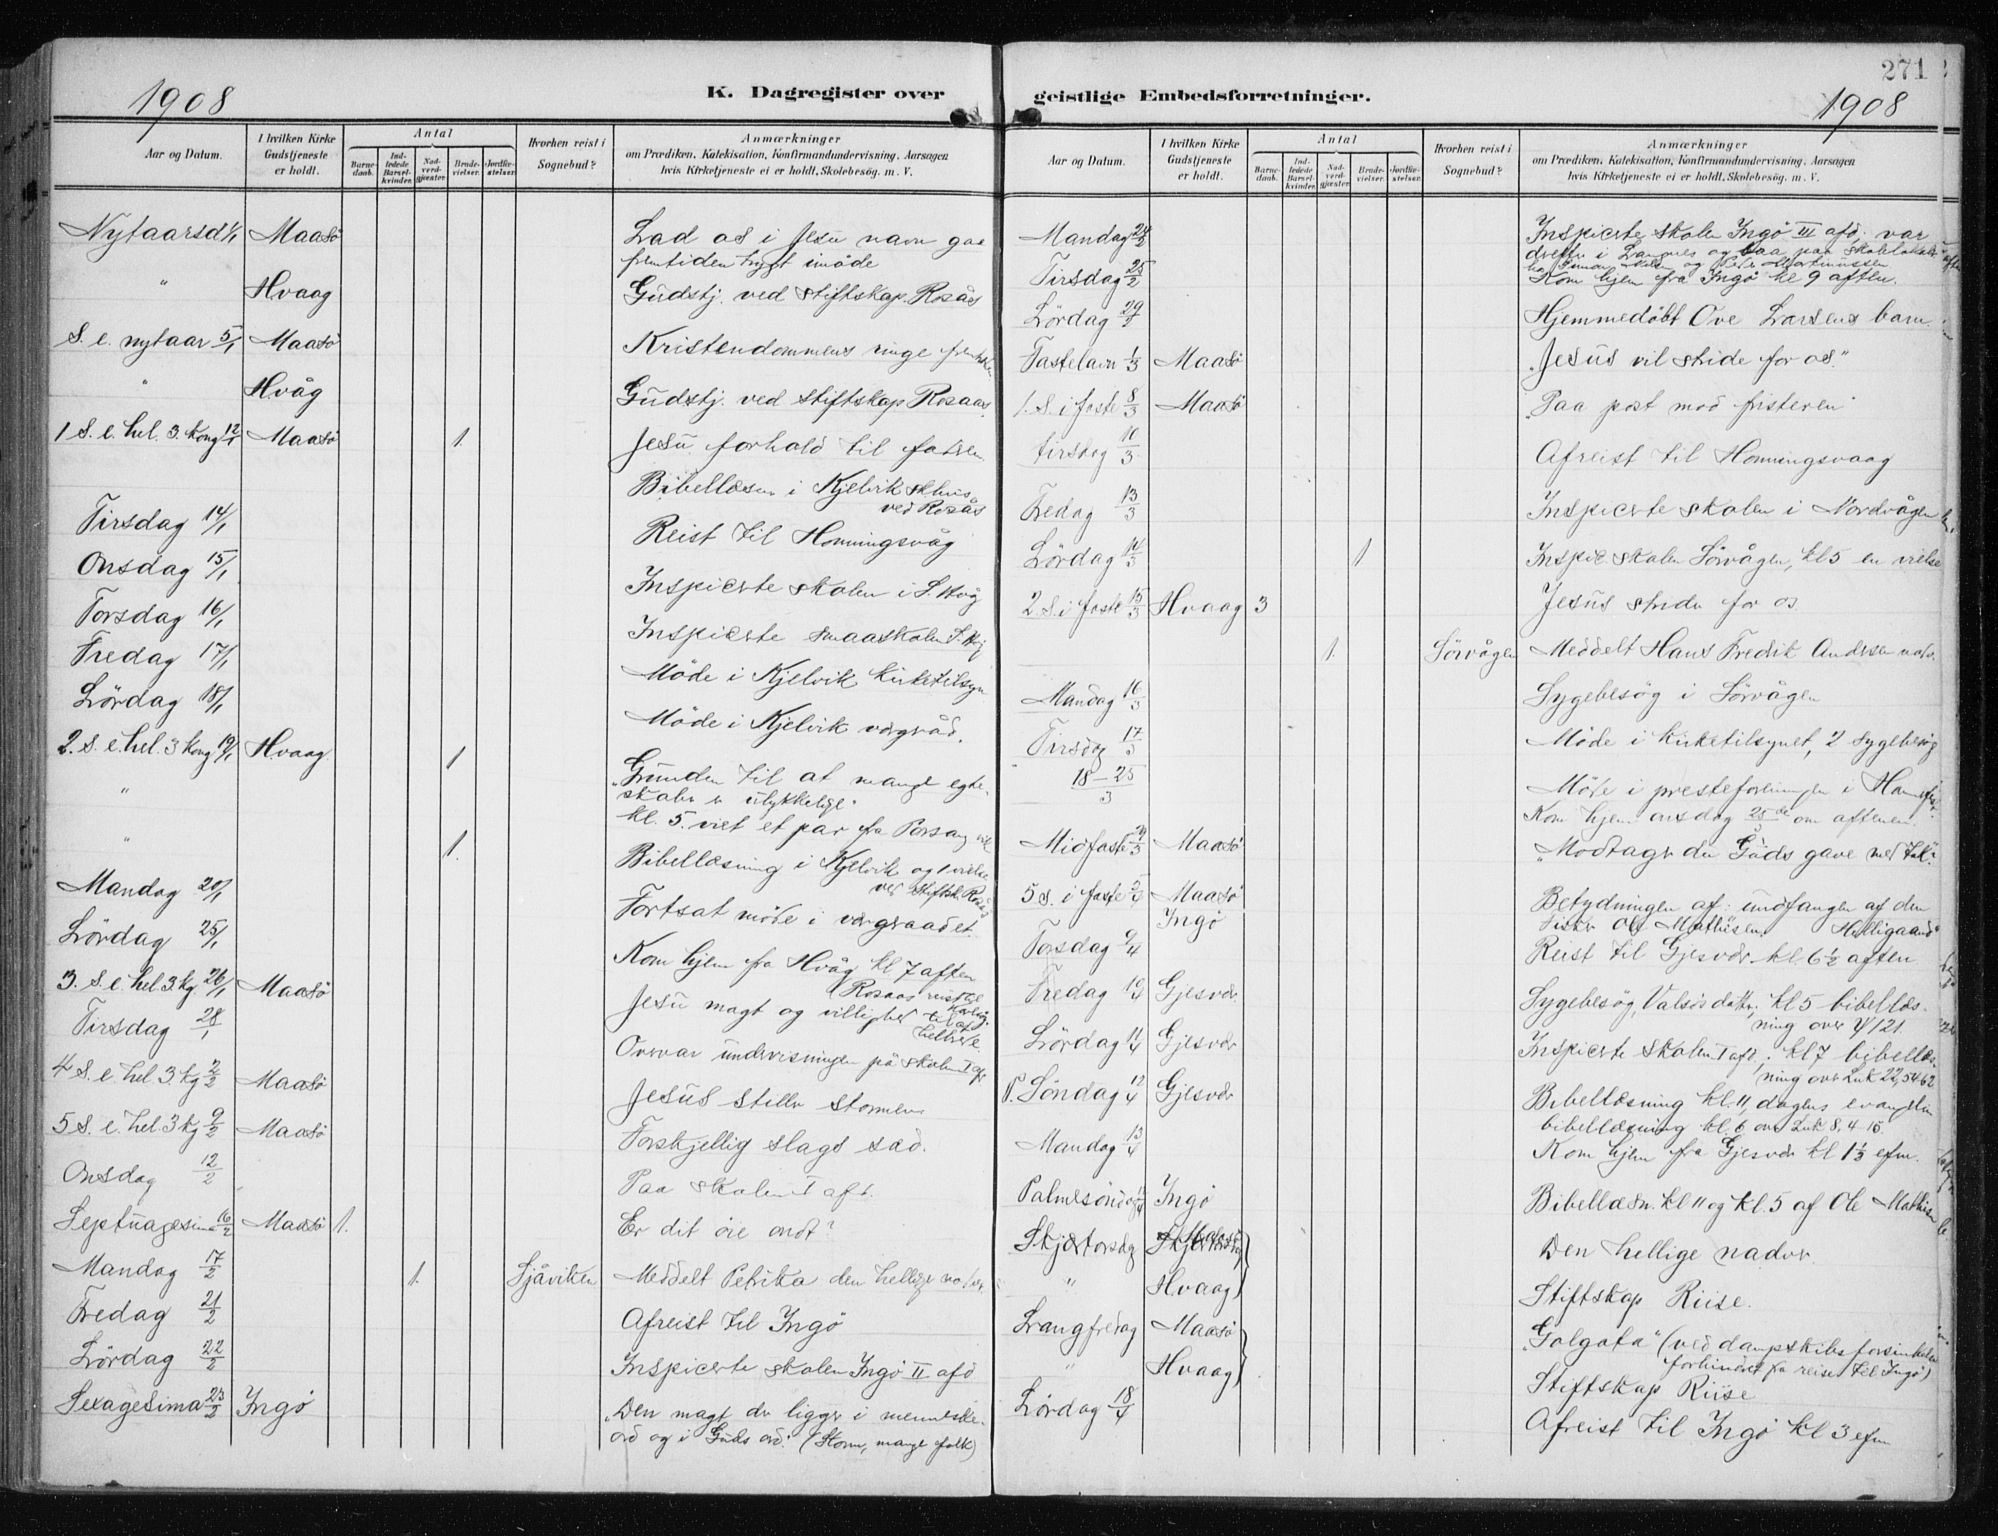 271
1908
K. Dagregister over
geistlige Embedsforretninger.
1908
Aar og Datum.
I hvilken Kirke Gudstjeneste er holdt.
Antal
Barnedaab.
Indledede Barselkvinder.
Nadverdgjæster.
Brudevielser.
Jordfæstelser.
Hvorhen reist i Sognebud?
Anmærkninger
om Prædiken, Katekisation, Konfirmandundervisning, Aarsagen
hvis Kirketjeneste ei er holdt, Skolebesøg. m. V.
Nytaarsd 1/1 Maasö Lad os i Jesu navn gaa
fremtiden trygt imöde
" Hvaag Gudstj. ved Stiftskap. Rosås
S. e. nytaar 5/1 Maasö Kristendommens ringe
" Hvåg Gudstj. ved Stiftskap Rosaas
1 S. e. hel. 3. Kong 12/1 Maasö 1. Jesu forhold til faderen
Bibellæsn i Kjelvik skhus
ved Rosås
Tirsdag 14/1 Reist til Honningsvåg
Onsdag 15/1 Inspicerte skolen i S. Våg
Torsdag 16/1 Inspicerte smaaskolen S. Våg
Fredag 17/1 Möde i Kjelvik kirketilsyn
Lördag 18/1 Möde i Kjelvik vergeråd.
2. S. e. hel. 3 Kong 19/1 Hvaag 1 "Grunden til at mange egte-
" skaber er ulykkelige"
kl. 5. viet et par fra Porsang
" 1. Bibellæsning i Kjelvik og 1 vielse
ved Stiftsk. Rosås
Mandag 20/1 Fortsat möte i vergeraadet.
Lördag 25/1 Kom hjem fra Hvåg kl 7 aften
3. S. e. hel. 3. kg. 26/1 Maasö Jesu magt og villighed til at
helbrede.
Tirsdag 28/1 Overvar undervisningen på skolen I afd
4 S. e. hel 3. kg 2/2 Maasö Jesus stiller stormen
5 S. e. hel 3 kg 9/2 Maasö Forskjellig slags sæd.
Onsdag 12/2 Paa skolen I afd.
Septuagesima 16/2 Maasö 1. Er dit öie ondt?
Mandag 17/2 1. Sjåviken Meddelt Petrika den hellige nadver
Fredag 21/2 Afreist til Ingö
Lördag 22/2 Inspicerte skolen Ingö II afd
Sexagesima 23/2 Ingö "Den magt der ligger i menneske-
ord og i Guds ord." (Storm, mange folk)
Aar og Datum.
I hvilken Kirke Gudstjeneste er holdt.
Antal
Barnedaab.
Indledede Barselkvinder.
Nadverdgjæster.
Brudevielser.
Jordfæstelser.
Hvorhen reist i Sognebud?
Anmærkninger
om Prædiken, Katekisation, Konfirmandundervisning, Aarsagen
hvis Kirketjeneste ei er holdt, Skolebesøg. m. V.
Mandag 24/2 Inspicerte skolen Ingö III afd. var
Tirsdag 25/2 Kom hjem fra Ingö kl 9 aften.
Lördag 29/2 Hjemmedöbt Ove Larsens barn.
Fastelavn 1/3 Maasö "Jesus vil stride for os."
1. S. i faste 8/3 Maasö "Paa post mod fristeren"
tirsdag 10/3 Afreist til Honningsvaag
Fredag 13/3 Inspicerte skolen i Nordvågen
Lördag 14/3 1 Inspic skolen Sörvågen, kl 5 en vielse
2. S. i faste 15/3 Hvaag 3 Jesus strider for os.
1. Sörvågen Meddelt Hans Fredik Andersen nadv.
Mandag 16/3 Sygebesög i Sörvågen
Tirsdag 17/3 Möde i kirketilsynet, 2 sygebesög
18 – 25/3 Möde i presteforeningen i
Kom hjem onsdag 25de/3 om aftenen.
Midfaste 29/3 Maasö "Modtager du Guds gave med tak?
5 S. i faste 5/4 Maasö Betydningen af: undfangen af den
Helligaand"
Ingö Ole Mathisen
Torsdag 9/4 Reist til Gjesvær kl. 6½ aften
Fredag 10/4 Gjesvær Sygebesög, kl 5 bibellæs-
ning over
Lördag 11/4 Gjesvær Inspicerte skolen I afd; kl 7 bibellæs-
ning over Luk 22,54-62
P. Söndag 12/4 Gjesvær Bibellæsning kl. 11, dagens evangelium
bibellæsning kl. 6 over Luk 8, 4-15.
Mandag 13/4 Kom hjem fra Gjesvær kl 1½ efm.
Palmesöndag Ingö Bibellæsn. kl 11 og kl. 5 af Ole Mathisen
Skjærtorsdag Skjærtorsdag Maasö Den hellige nadver.
" Hvaag Stiftskap Riise.
Langfredag Maasö "Golgata" (ved dampskibsforsinkelse
forhindret fra reise til Ingö)
" Hvaag Stiftskap Riise
Lördag 18/4 Afreist til Ingö kl 3 efm